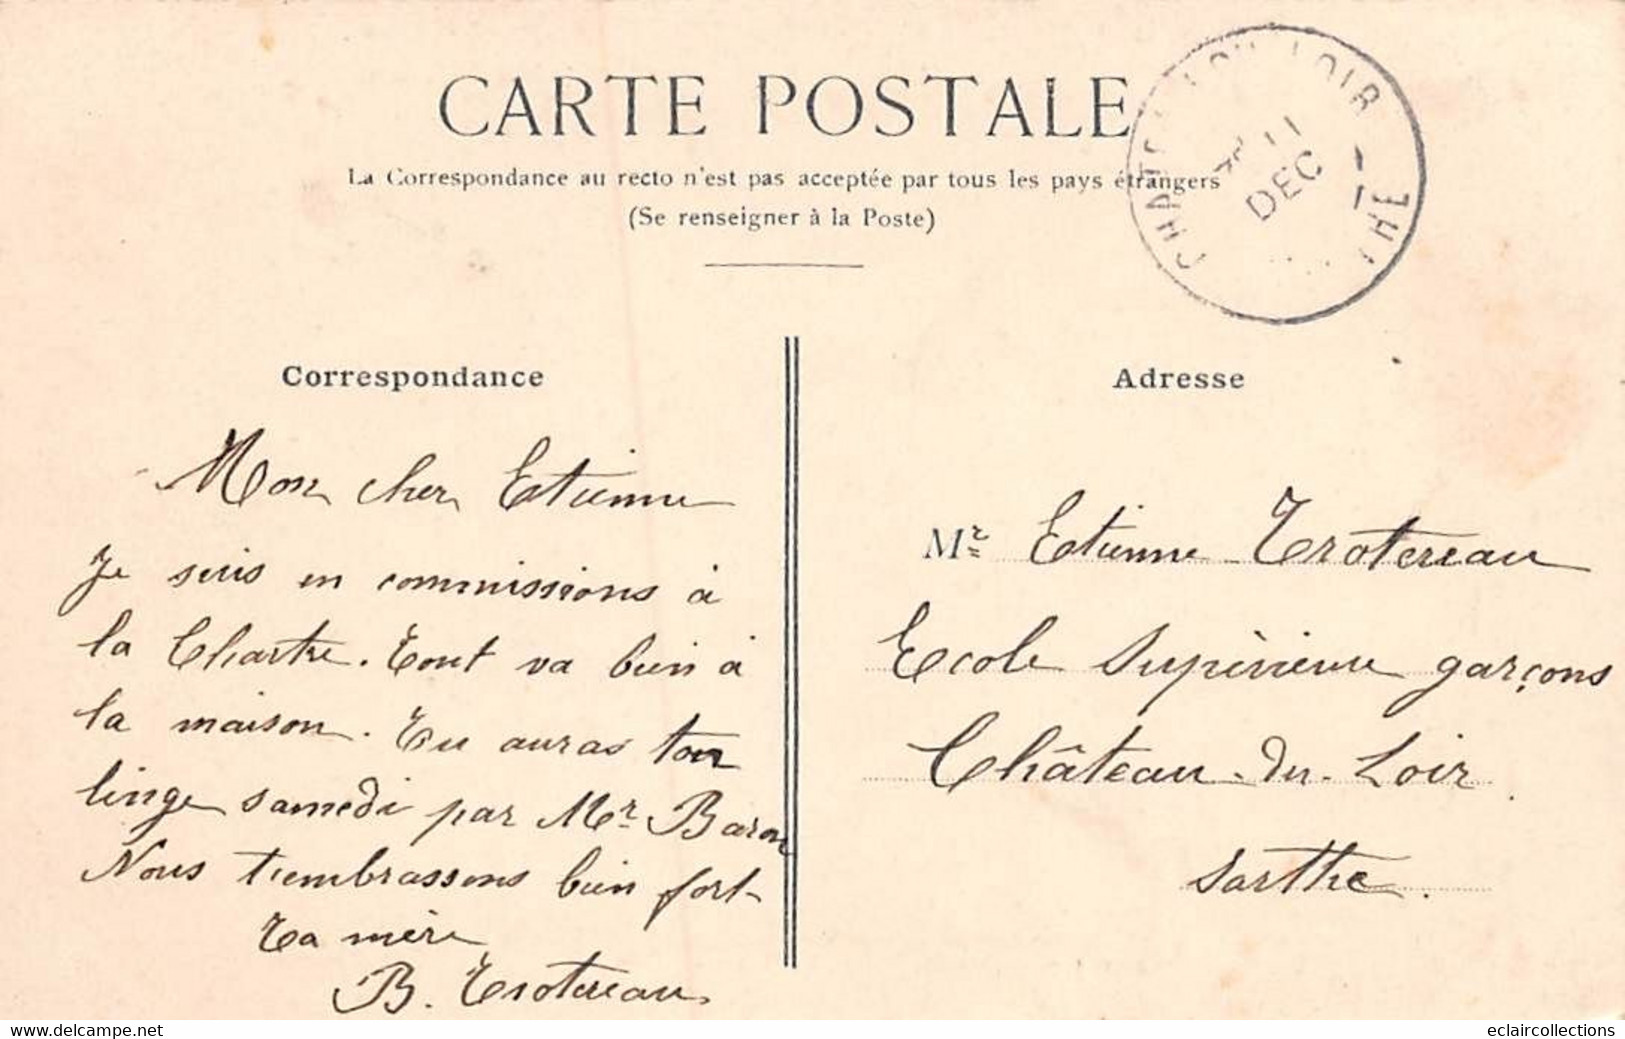 CARTE POSTALE
La Correspondance au recto n'est pas acceptée par tous les pays étrangers
(Se renseigner à la Poste)
11
DEC
Correspondance
Mon cher Etienne
Je suis en commissions à
la Chartre. Tout va bien à
la maison. Tu auras ton
linge samedi par Mr Baron
Nous t'embrassons bien fort
Ta mère
B. Trotereau
Adresse
Mr Etienne Trotereau
Ecole Supérieure garçons
Château-du-Loir
Sarthe.
www.delcampe.net
eclaircollections